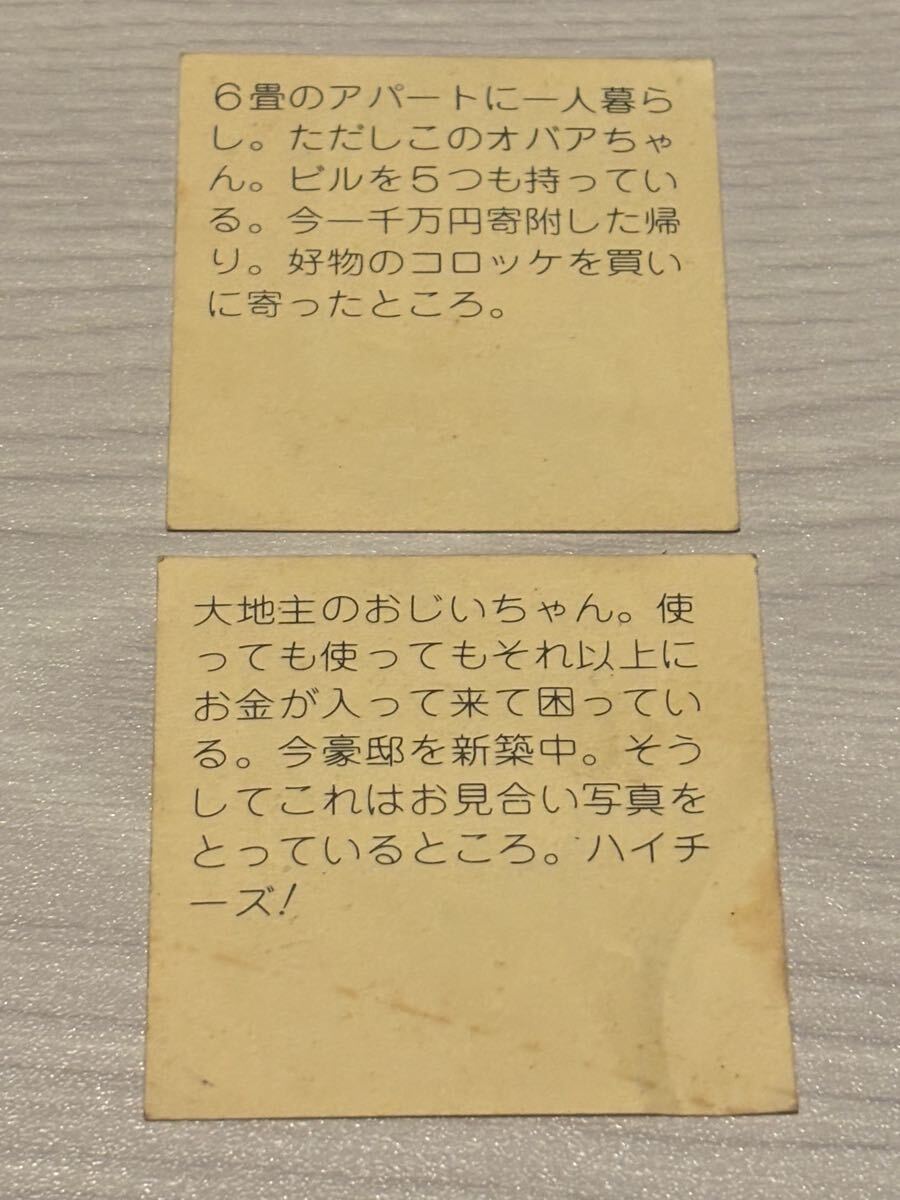 6畳のアパートに一人暮ら
し。ただしこのオバアちゃ
ん。ビルを5つも持ってい
る。今一千万円寄附した帰
り。好物のコロッケを買い
に寄ったところ。
大地主のおじいちゃん。使
っても使ってもそれ以上に
お金が入って来て困ってい
る。今豪邸を新築中。そう
してこれはお見合い写真を
とっているところ。ハイチ
ーズ!